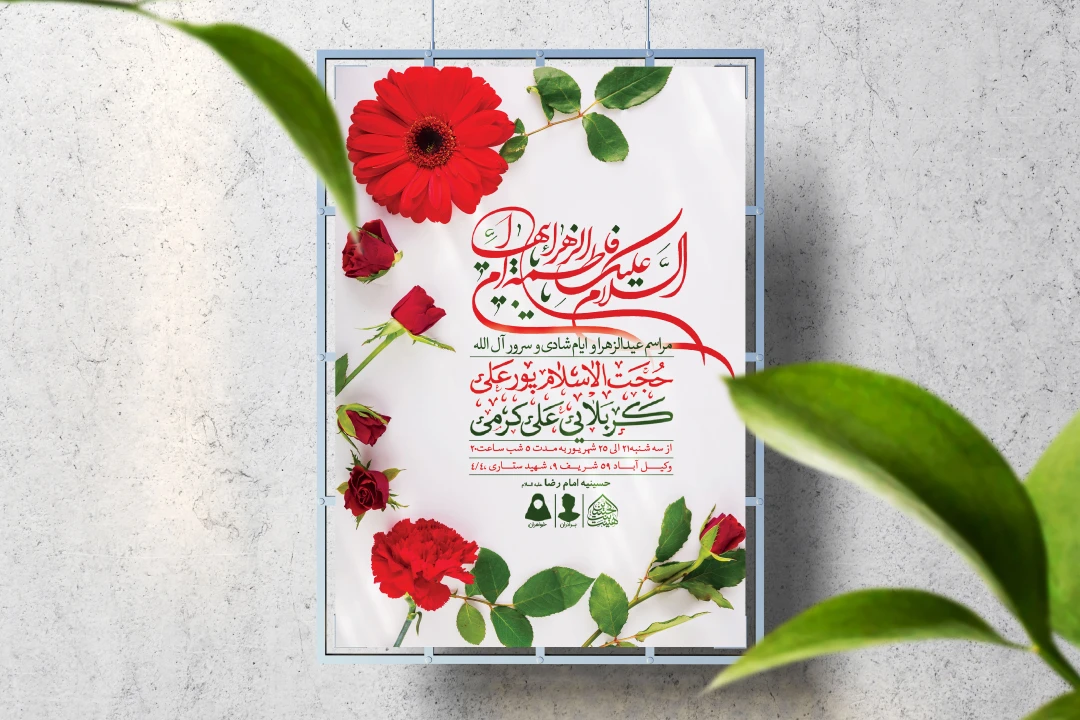 السلام علیک یا فاطمة الزهراء ایتها
مراسم عیدالزهرا و ایام شادی و سرور آل الله
حُجَت الاسلام پورعلی
کربلایی علی کرمی
از سه شنبه ۲۱ الی ۲۵ شهریور به مدت ۵ شب ساعت ۲۰
وکیل آباد ۵۹ شریف ۹، شهید ستاری ۴/۴،
حسینیه امام رضا علیه السلام
برادران
خواهران